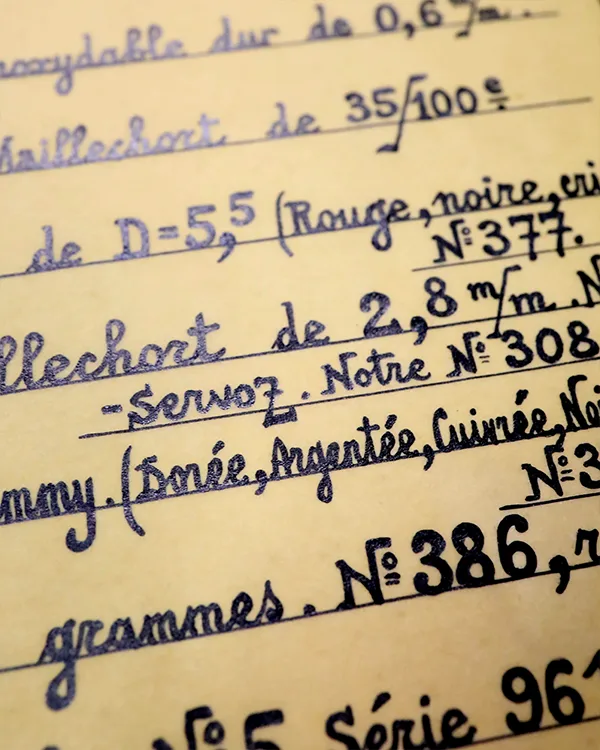 inoxydable dur de 0,6 m/m.
Maillechort de 35/100e
de D=5,5 (Rouge, noire, cri
No 377.
llechort de 2,8 m/m. N
-Servoz. Notre No 308
mmy. (Dorée, Argentée, Cuivrée, Noi
No 3
grammes. No 386, r
No 5 Série 961